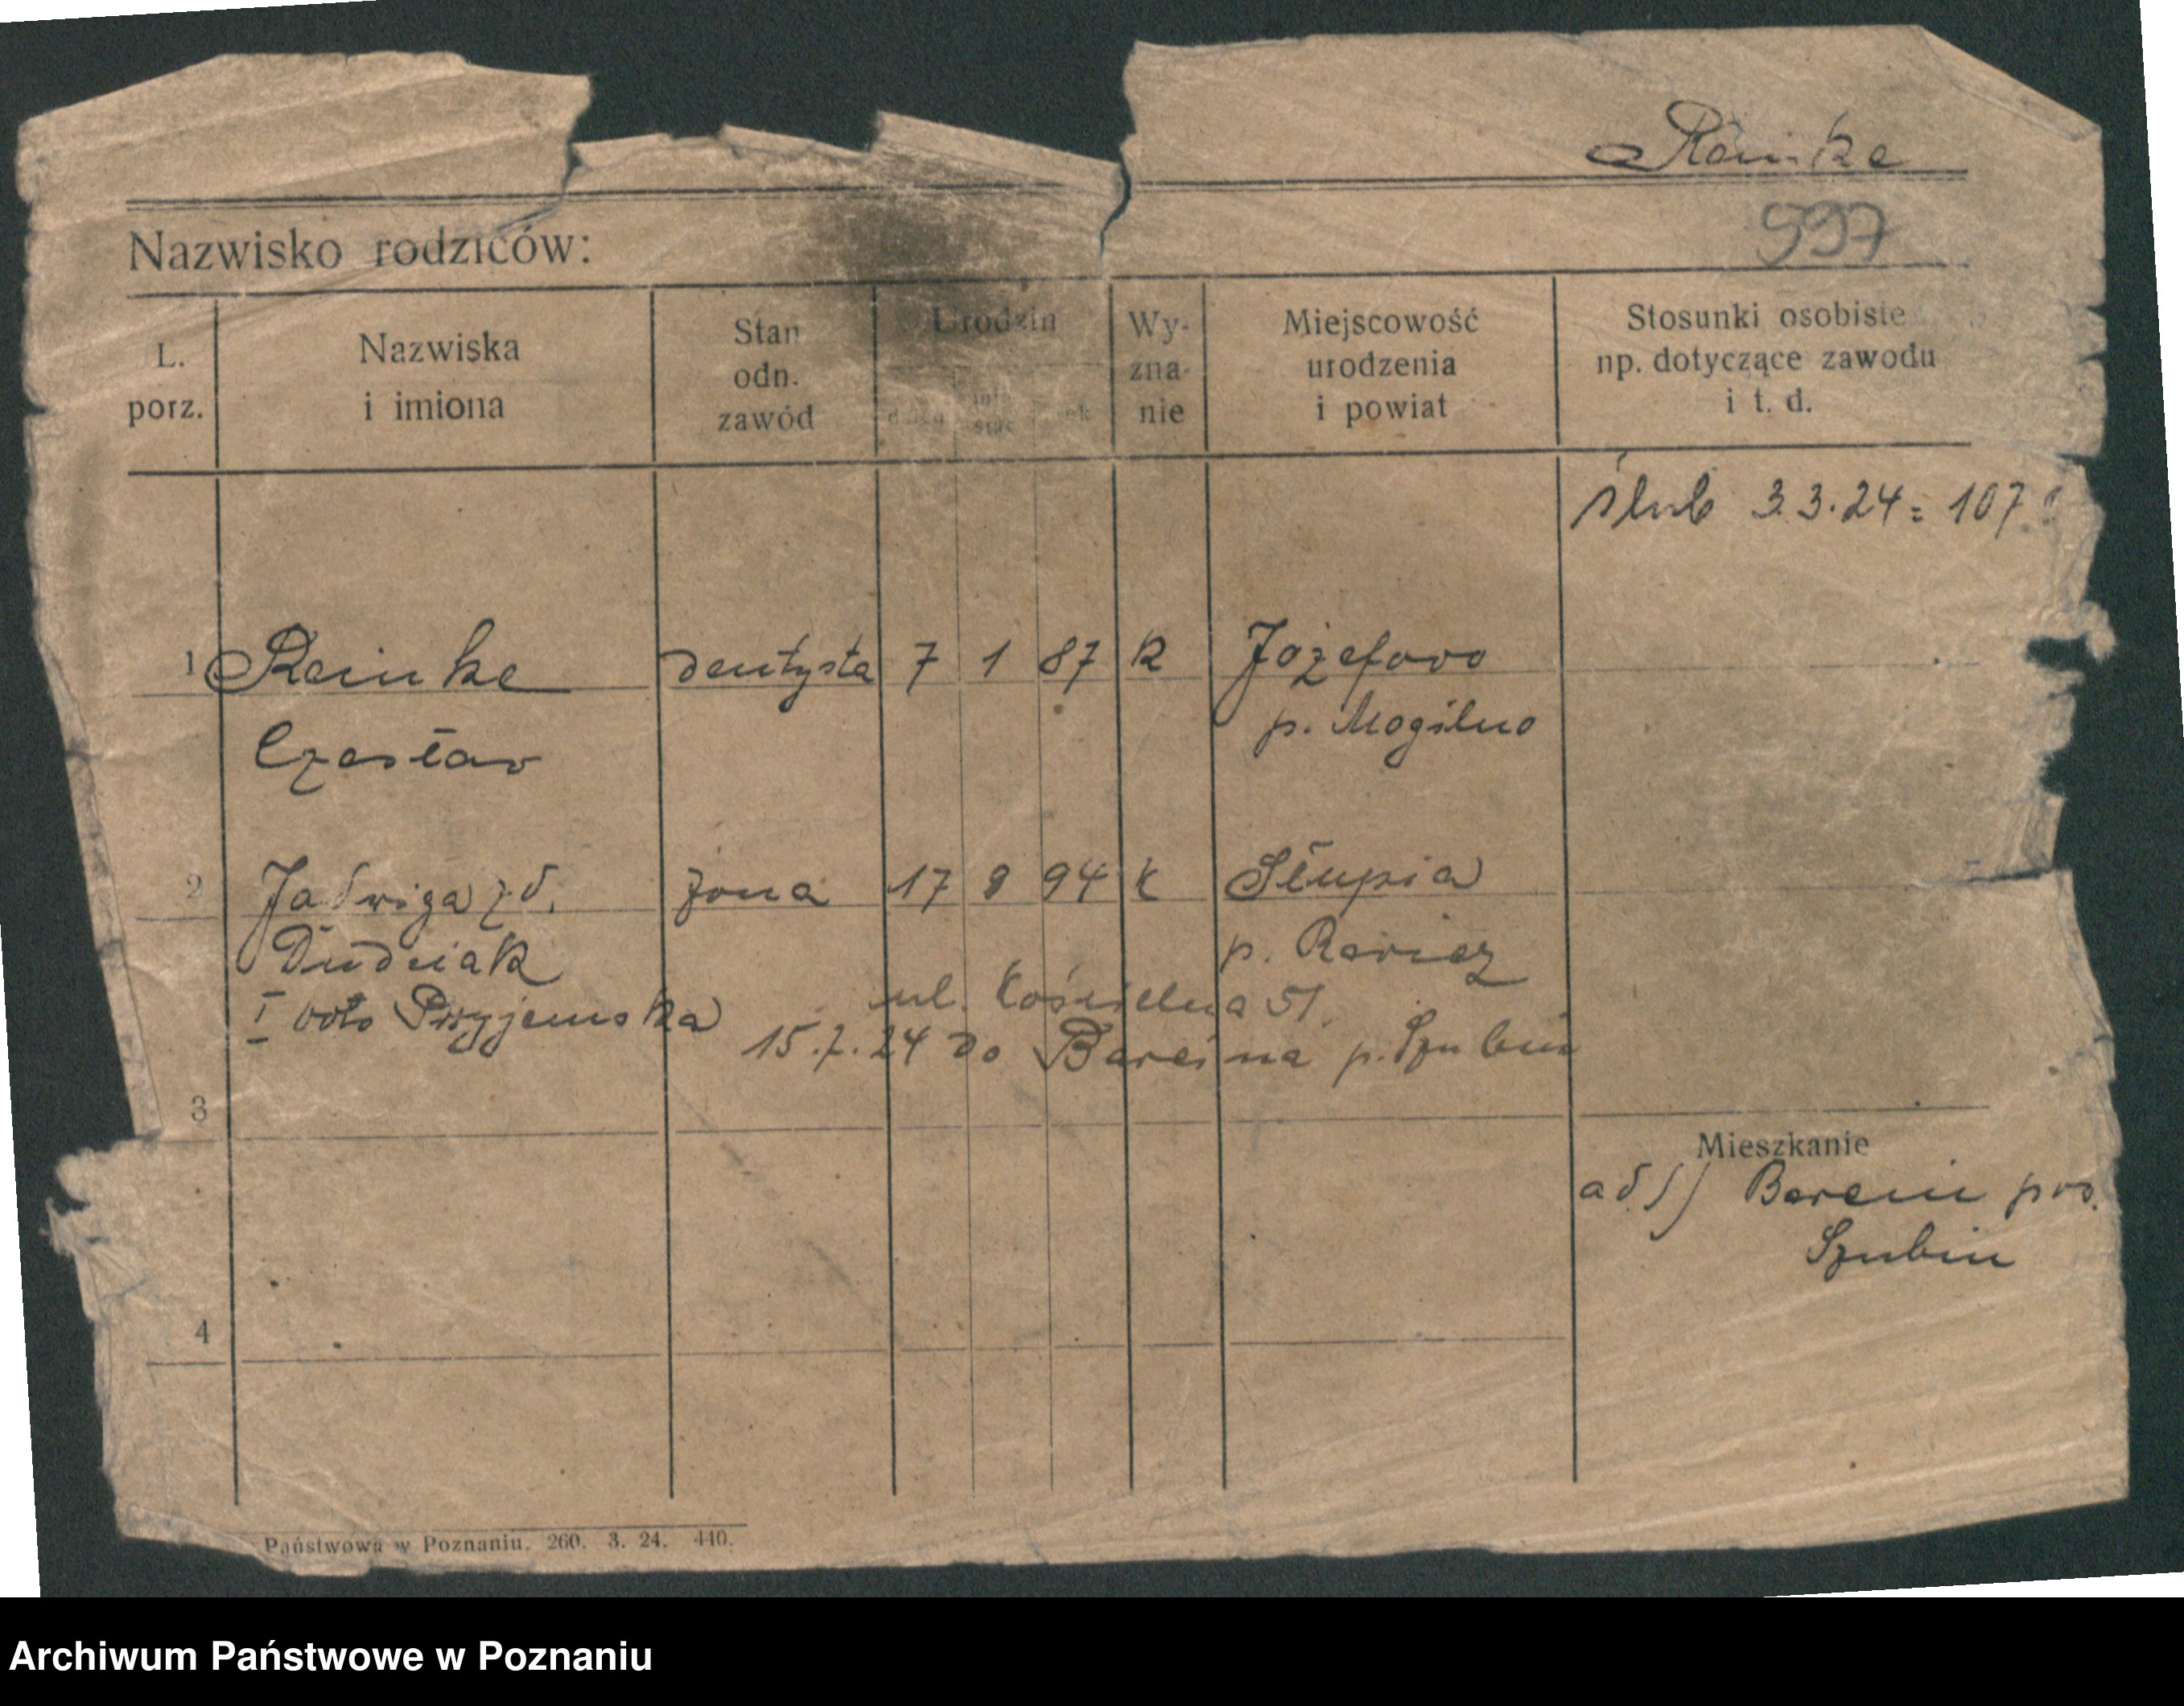 Reinke
997
Nazwisko rodziców:
L.
porz.
Nazwiska
i imiona
Stan
odn.
zawód
Urodzin
dzień
mie-
siąc
rok
Wy-
zna-
nie
Miejscowość
urodzenia
i powiat
Stosunki osobiste
np. dotyczące zawodu
i t. d.
ślub 3.3.24 = 107
1 Reinke dentysta 7 1 87 K Józefowo
p. Mogilno
Czesław
2 Jadwiga z d. żona 17 8 94 k Słupia
Dudziak p. Rawicz
I voto Przyjemska ul. Kościelna 51.
15.7.24 do Barcina p. Szubin
3
Mieszkanie
ad 1) Barcin pow.
Szubin
4
Państwowa w Poznaniu. 260. 3. 24. 440.
Archiwum Państwowe w Poznaniu